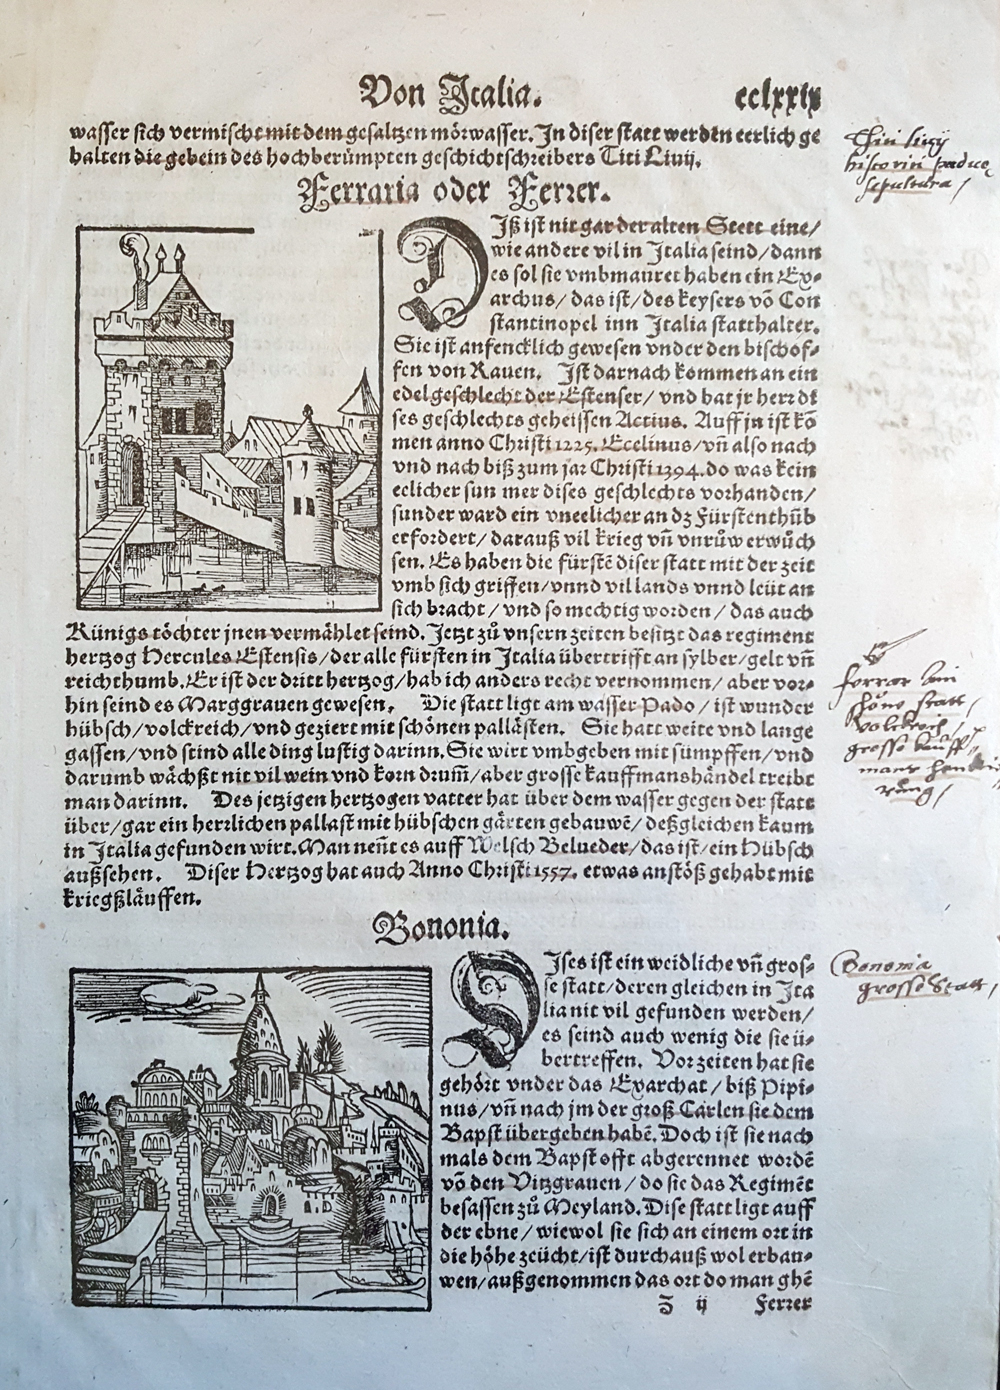 Von Italia. cclxxix
wasser sich vermischt mit dem gesaltzen mörwasser. In diser statt werden eerlich ge
halten die gebein des hochberümpten geschichtschreibers Titi Liuij.
Ferraria oder Ferrer.
DIß ist nit gar der alten Stett eine/
wie andere vil in Italia seind/dann
es sol sie vmbmauret haben ein Ex-
archus/das ist/des keysers võ Con
stantinopel inn Italia statthalter.
Sie ist anfencklich gewesen vnder den bischof-
fen von Rauen. Ist darnach kommen an ein
edel geschlecht der Estenser/ vnd hat jr herr di
ses geschlechts geheissen Actius. Auff jn ist kõ
men anno Christi 1225. Ecelinus/vñ also nach
vnd nach biß zum jar Christi 1394. do was kein
eelicher sun mer dises geschlechts vorhanden/
sunder ward ein vneelicher an dz Fürstenthũb
erfordert/darauß vil krieg vñ vnrůw erwůch
sen. Es haben die fürstẽ diser statt mit der zeit
vmb sich griffen/vnnd vil lands vnnd leüt an
sich bracht/vnd so mechtig worden/das auch
Künigs töchter jnen vermählet seind. Jetzt zů vnsern zeiten besitzt das regiment
hertzog Hercules Estensis/der alle fürsten in Italia übertrifft an sylber/gelt vñ
reichthumb. Er ist der dritt hertzog/hab ich anders recht vernommen/aber vor-
hin seind es Marggrauen gewesen. Die statt ligt am wasser Pado/ist wunder
hübsch/volckreich/vnd geziert mit schönen pallästen. Sie hatt weite vnd lange
gassen/vnd seind alle ding lustig darinn. Sie wirt vmbgeben mit sümpffen/vnd
darumb wächßt nit vil wein vnd korn drum̃/aber grosse kauffmanshändel treibt
man darinn. Des jetzigen hertzogen vatter hat über dem wasser gegen der statt
über/gar ein herrlichen pallast mit hübschen gärten gebauwẽ/deßgleichen kaum
in Italia gefunden wirt. Man neñt es auff Welsch Belueder/das ist/ein Hübsch
außsehen. Diser Hertzog hat auch Anno Christi 1557. etwas anstöß gehabt mit
kriegßläuffen.
Bononia.
DIses ist ein weidliche vñ gros-
se statt/deren gleichen in Ita
lia nit vil gefunden werden/
es seind auch wenig die sie ü-
bertreffen. Vor zeiten hat sie
gehört vnder das Exarchat/biß Pipi-
nus/vñ nach jm der groß Carlen sie dem
Bapst übergeben habẽ. Doch ist sie nach
mals dem Bapst offt abgerennet wordẽ
võ den Vitzgrauen/do sie das Regimẽt
besassen zů Meyland. Dise statt ligt auff
der ebne/wiewol sie sich an einem ort in
die höhe zeücht/ist durchauß wol erbau-
wen/außgenommen das ort do man ghẽ
Z ij Ferrer
historici paduae
sepultura
Ferrar
schöne statt
Volckreich
grosse kauff
mans
Bononia
grosse Statt